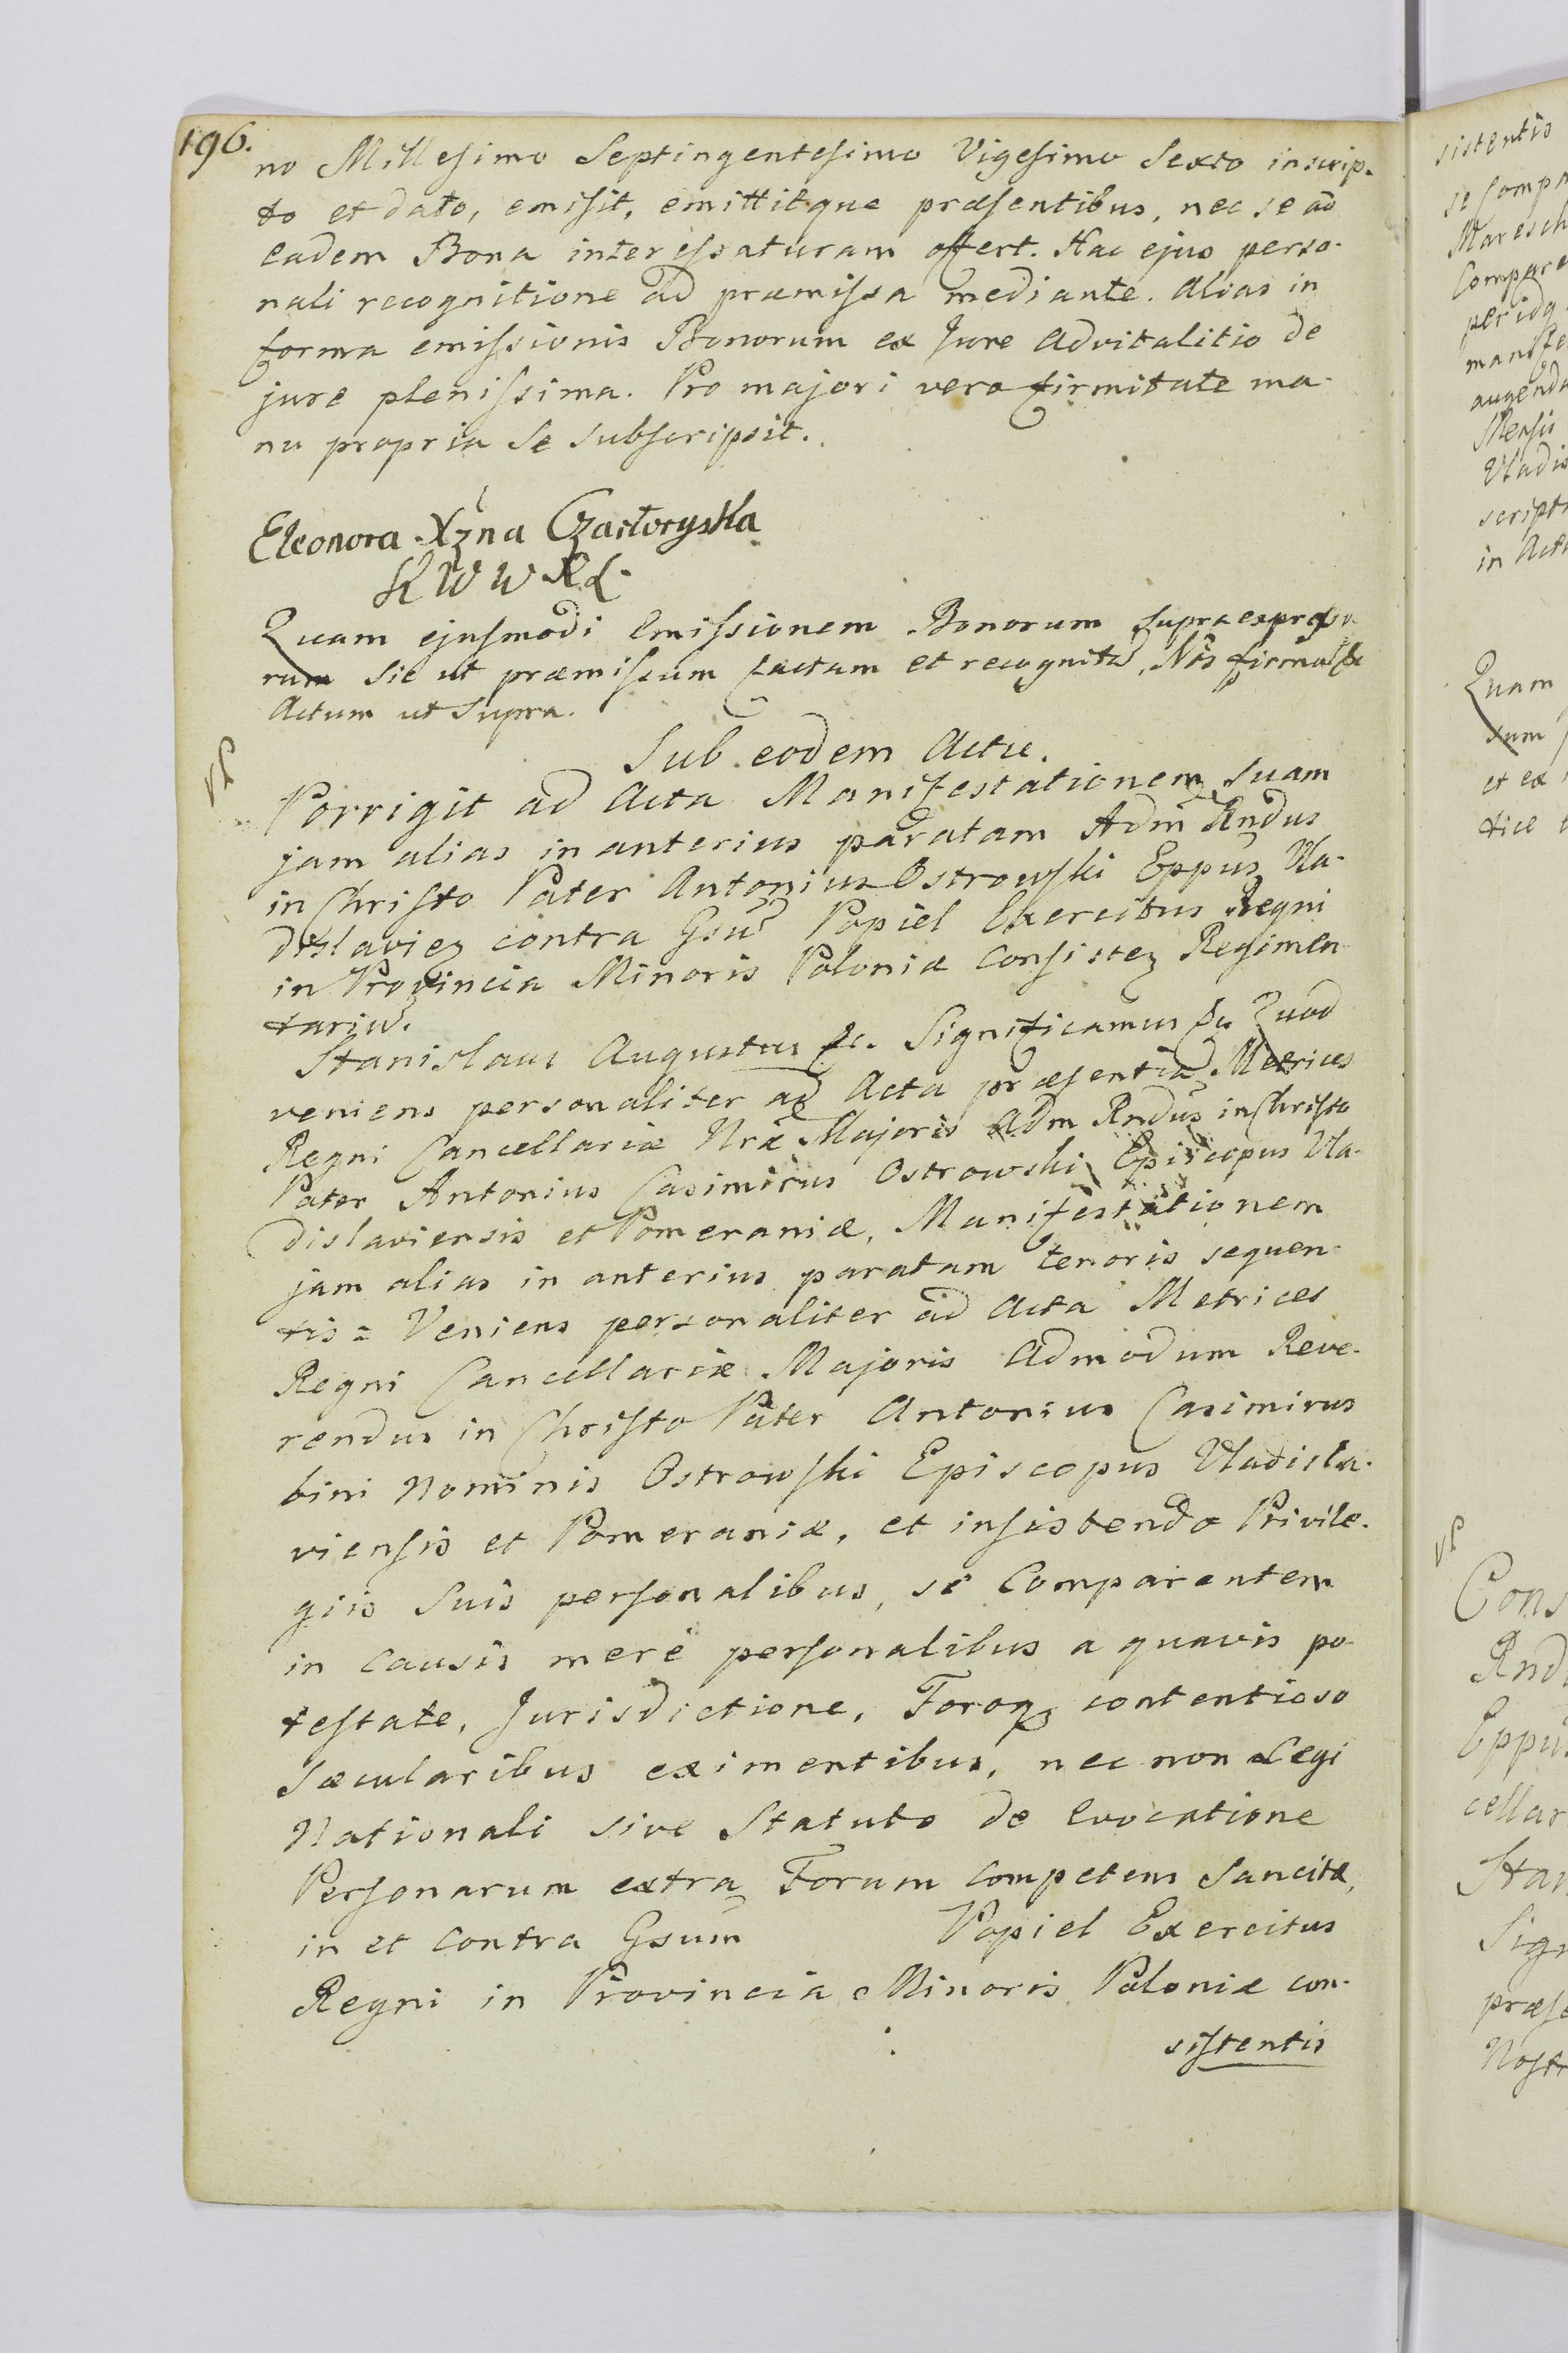 196.
no Millesimo Septingentesimo Vigesimo Sexto inscrip-
to et dato, emisit, emittitque præsentibus, nec se ad
eadem Bona interessaturam offert. Hac ejus perso-
nali recognitione ad præmissa mediante. Alias in
forma emissionis Bonorum ex Jure Advitalitio de
jure plenissima. Pro majori vero firmitate ma-
nu propria se subscripsit.
Eleonora Xżna Czartoryska
K W W X L
Quam ejusmodi Emissionem Bonorum supraexpresso
rum sic ut præmissum factam et recognită. Nos
Actum ut supra.
Sub eodem Actu.
Porrigit ad Acta Manifestationem suam
jam alias in anterius paratam Adm Rndus
in Christo Pater Antonius Ostrowski Eppus Vla-
dislavieṇ contra Gsum Popiel Exercitus Regni
in Provincia Minoris Poloniæ Consisteñ Regimen-
tarium.
Stanislaus Augustus &c. Significamus &c Quod
veniens personaliter ad Acta præsentia Metrices
Regni Cancellariæ Nræ Majoris Adm Rndus in Christo
Pater Antonius Casimirus Ostrowski Episcopus Vla-
dislaviensis et Pomeraniæ, Manifestationem
jam alias in anterius paratam tenoris sequen-
tis = Veniens personaliter ad Acta Metrices
Regni Cancellariæ Majoris Admodum Reve-
rendus in Christo Pater Antonius Casimirus
bini Nominis Ostrowski Episcopus Vladisla-
viensis et Pomeraniæ, et insistendo Privile-
giis Suis personalibus, se Comparentem
in causis merè personalibus a quavis po-
testate, Jurisdictione, Foroq3 contentioso
Sæcularibus eximentibus, nec non Legi
Nationali sive Statuto de Evocatione
Personarum extra Forum Competens Sancitæ,
in et contra Gsum Popiel Exercitus
Regni in Provincia Minoris Poloniæ con-
sistentis
sistentis
se Comp
Maresch
Compare
periog
manife
augenda
Mensis
Vladis
script
in Act
Quam
sum
et ex
tice
Cons
Rnd
Eppus
cellar
Stan
Sign
præs
Nostr